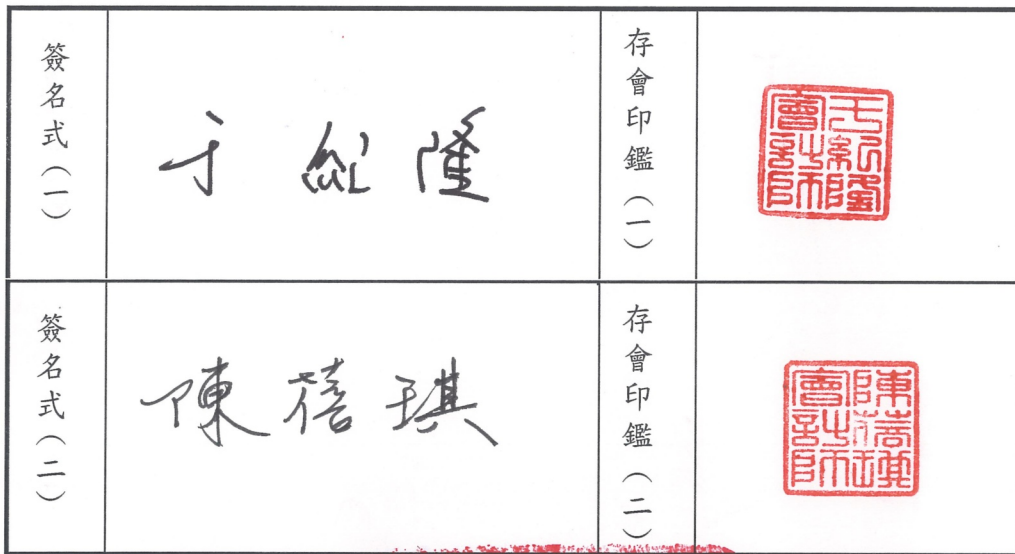 簽名式（一）
于紀隆
存會印鑑（一）
于紀隆
會計師
簽名式（二）
陳蓓琪
存會印鑑（二）
陳蓓琪
會計師